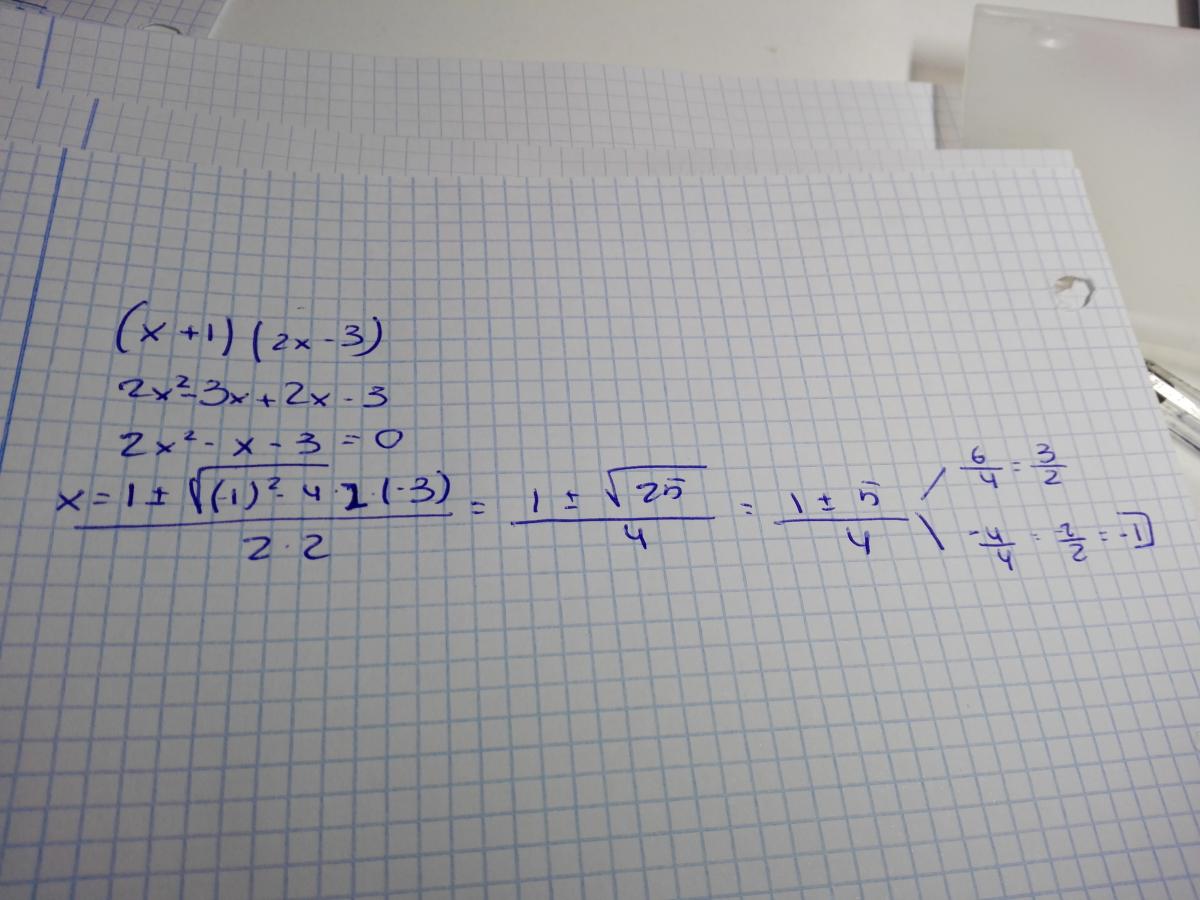 (x+1)(2x-3)
2x²-3x+2x-3
2x²-x-3=0
x = (1 ± √((-1)²-4·2·(-3))) / (2·2) = (1 ± √25) / 4 = (1 ± 5) / 4
6/4 = 3/2
-4/4 = -2/2 = -1